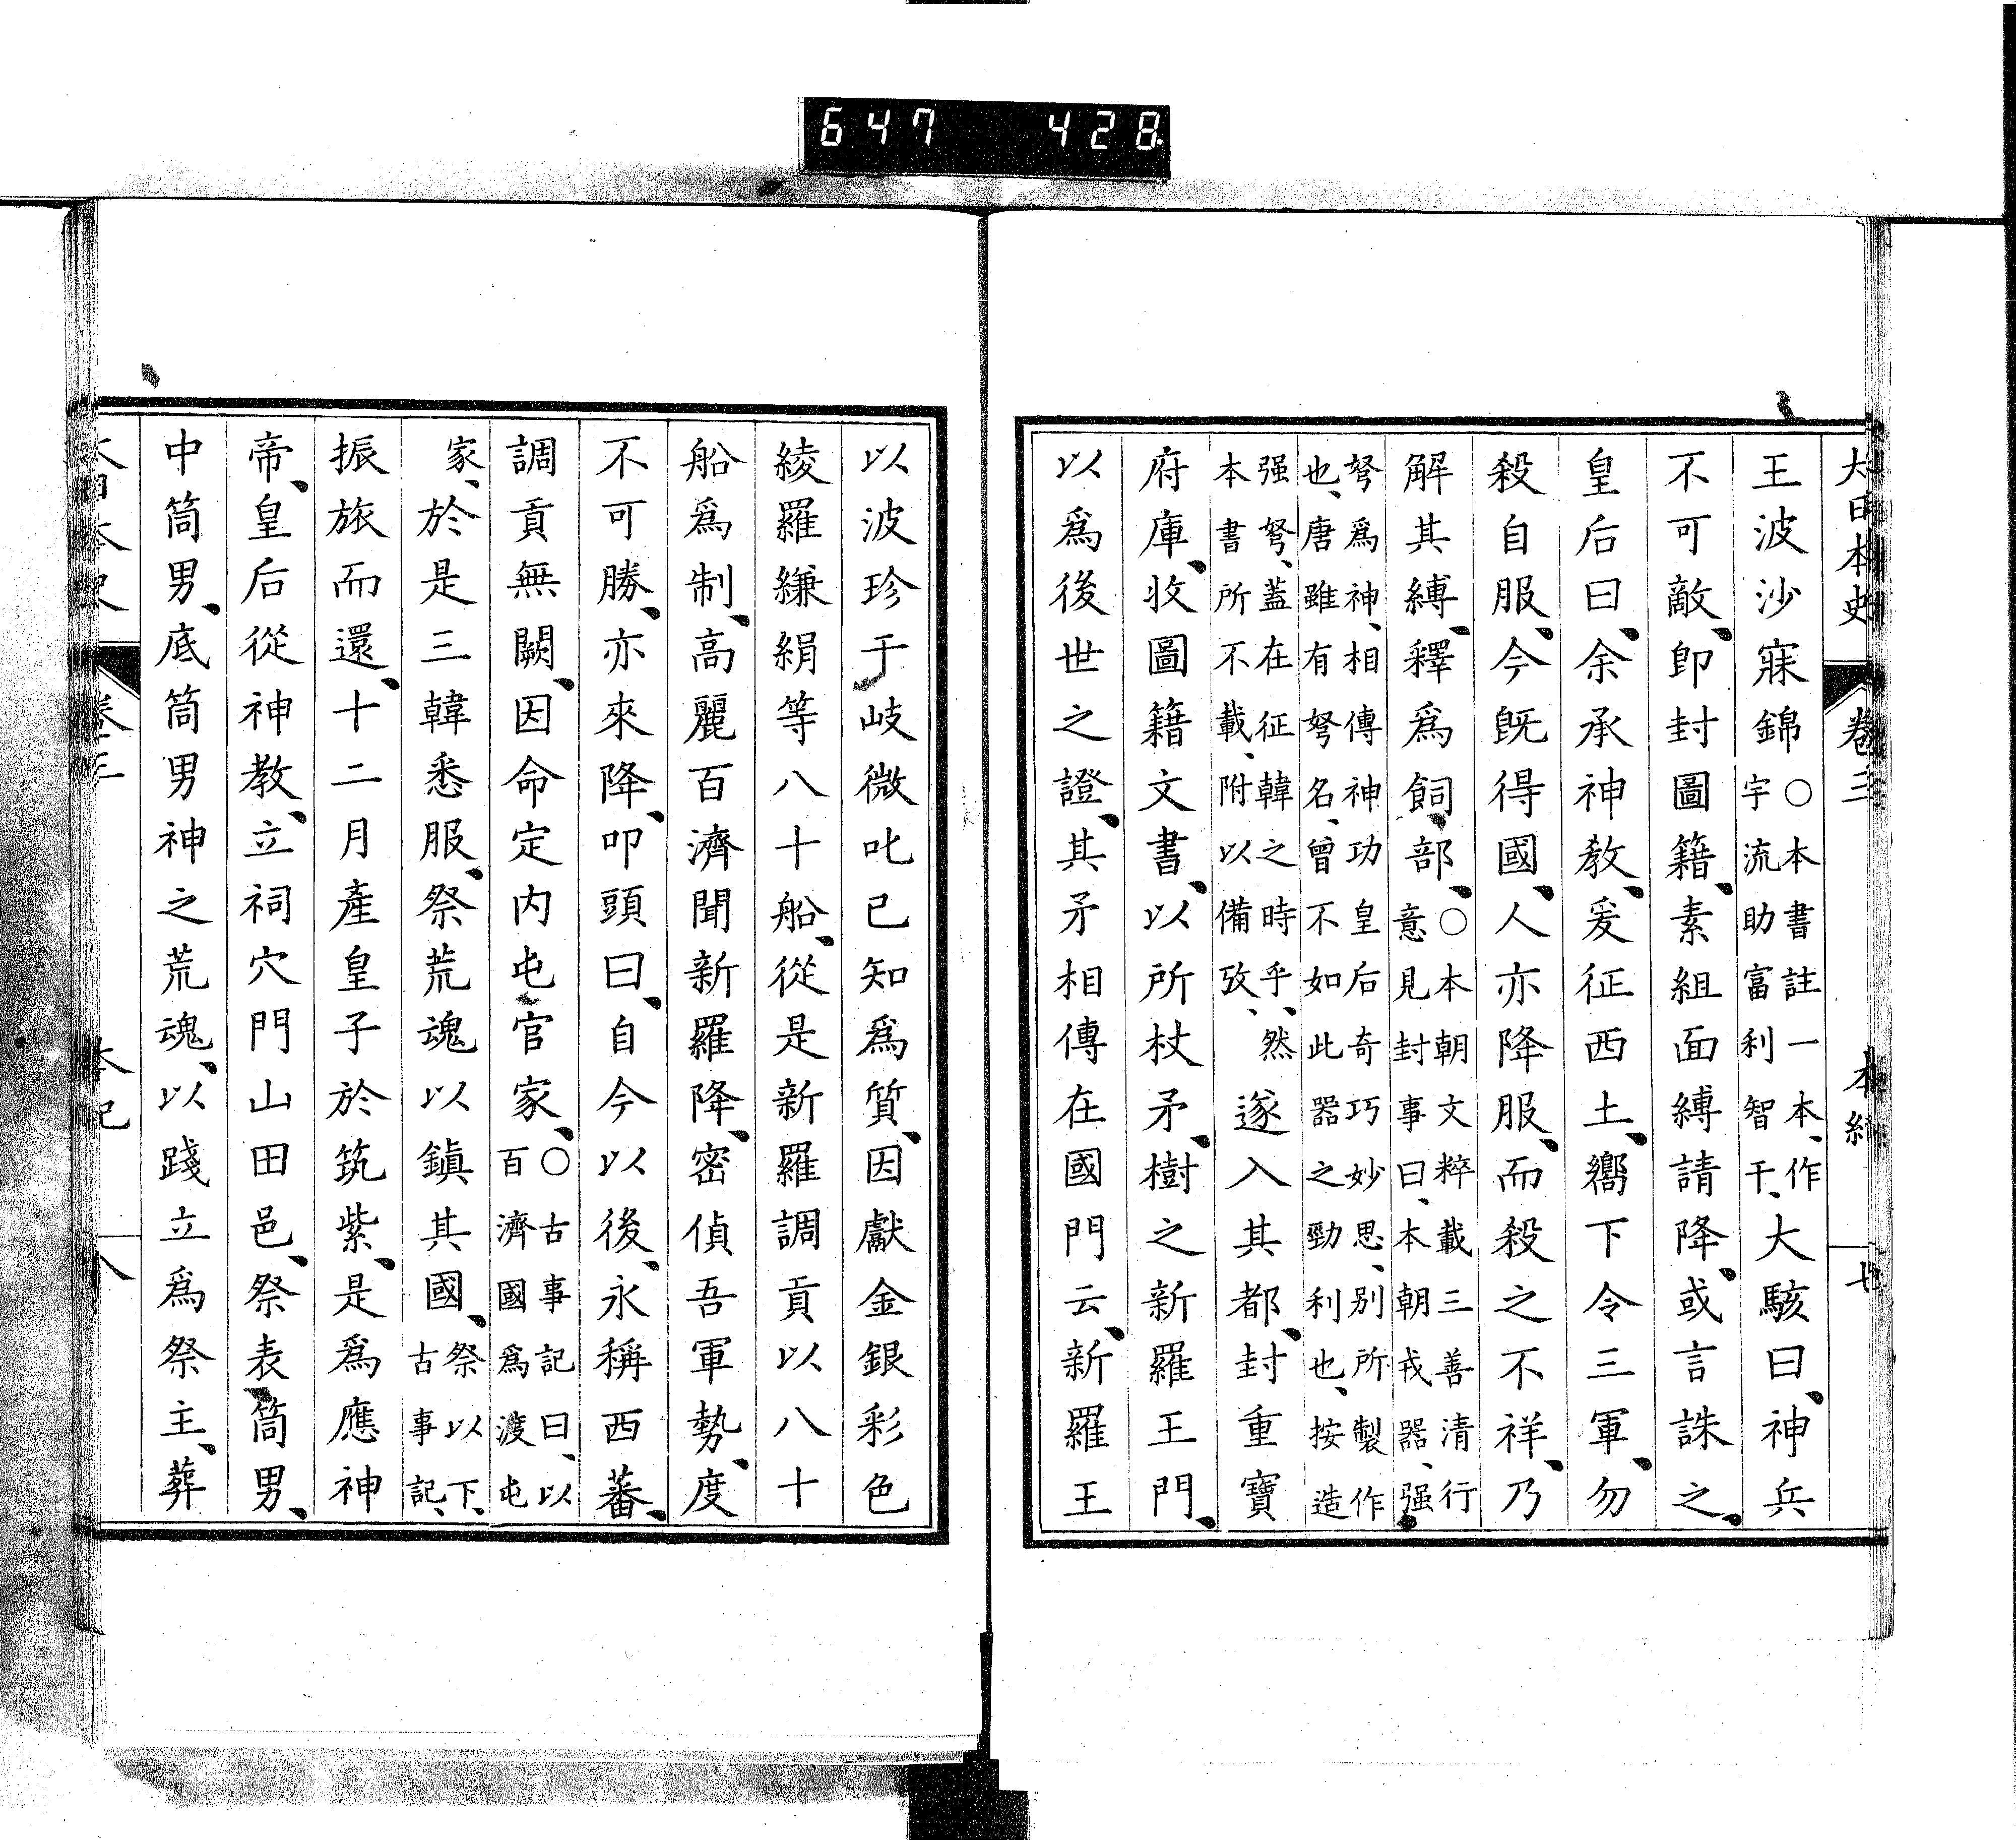 647 428
大日本史 卷三 本紀 七
王波沙寐錦○本書註一本、作宇流助富利智干、大駭曰、神兵
不可敵、卽封圖籍、素組面縛請降、或言誅之、
皇后曰、余承神教、爰征西土、嚮下令三軍、勿
殺自服、今旣得國、人亦降服、而殺之不祥、乃
解其縛、釋爲飼部、○本朝文粹載三善清行意見封事曰、本朝戎器、强
弩爲神、相傳神功皇后奇巧妙思、別所製作也、唐雖有弩名、曾不如此器之勁利也、按造
强弩、蓋在征韓之時乎、然本書所不載、附以備攷、遂入其都、封重寶
府庫、收圖籍文書、以所杖矛、樹之新羅王門、
以爲後世之證、其矛相傳在國門云、新羅王
以波珍于岐微叱己知爲質、因獻金銀彩色
綾羅縑絹等八十船、從是新羅調貢以八十
船爲制、高麗百濟聞新羅降、密偵吾軍勢、度
不可勝、亦來降、叩頭曰、自今以後、永稱西蕃、
調貢無闕、因命定内屯官家、○古事記曰、以百濟國爲渡屯
家、於是三韓悉服、祭荒魂以鎭其國、祭以下、古事記、
振旅而還、十二月產皇子於筑紫、是爲應神
帝、皇后從神教、立祠穴門山田邑、祭表筒男、
中筒男、底筒男神之荒魂、以踐立爲祭主、葬
大日本史 卷三 本紀 八